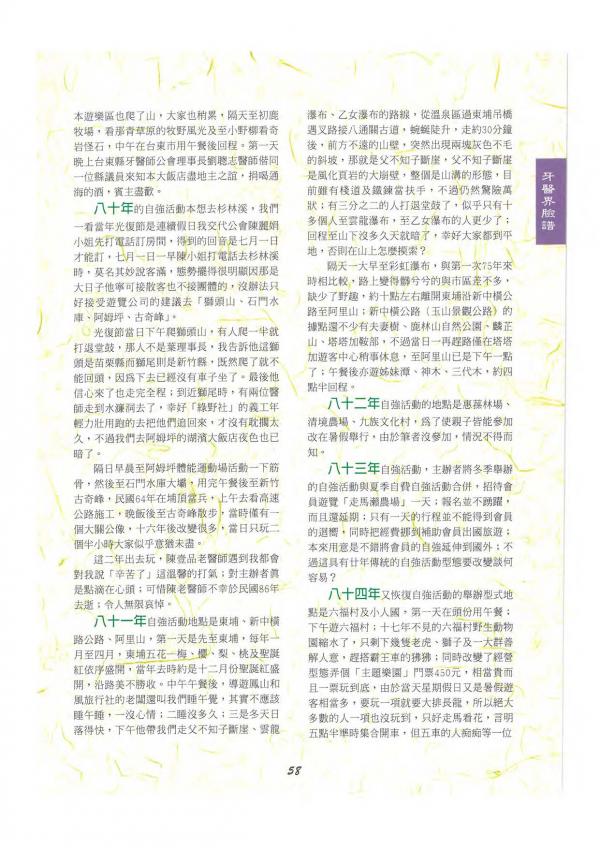 本遊樂區也爬了山，大家也稍累，隔天至初鹿
牧場，看那青草原的牧野風光及至小野柳看奇
岩怪石，中午在台東市用午餐後回程。第一天
晚上台東縣牙醫師公會理事長劉聰志醫師偕同
一位縣議員來知本大飯店盡地主之誼，捐喝通
海的酒，賓主盡歡。
八十年的自強活動本想去杉林溪，我們
一看當年光復節是連續假日我交代公會陳麗娟
小姐先打電話訂房間，得到的回音是七月一日
才能訂，七月一日一早陳小姐打電話去杉林溪
時，莫名其妙說客滿，態勢擺得很明顯因那是
大日子他寧可接散客也不接團體的，沒辦法只
好接受遊覽公司的建議去「獅頭山、石門水
庫、阿姆坪、古奇峰」。
光復節當日下午爬獅頭山，有人爬一半就
打退堂鼓，那人不是葉理事長，我告訴他這獅
頭是苗栗縣而獅尾則是新竹縣，既然爬了就不
能回頭，因為下去已經沒有車子坐了。最後他
信心來了也走完全程；到近獅尾時，有兩位醫
師走到水濂洞去了，幸好「綠野社」的義工年
輕力壯用跑的去把他們追回來，才沒有耽擱太
久，不過我們去阿姆坪的湖濱大飯店夜色也已
暗了。
隔日早晨至阿姆坪體能運動場活動一下筋
骨，然後至石門水庫大壩，用完午餐後至新竹
古奇峰，民國64年在埔頂當兵，上午去看高速
公路施工，晚飯後至古奇峰散步，當時僅有一
個大關公像，十六年後改變很多，當日只玩二
個半小時大家似乎意猶未盡。
這二年出去玩，陳壹品老醫師遇到我都會
對我說「辛苦了」這溫馨的打氣；對主辦者真
是點滴在心頭；可惜陳老醫師不幸於民國86年
去逝；令人無限哀悼。
八十一年自強活動地點是東埔、新中橫
路公路、阿里山，第一天是先至東埔，每年一
月至四月，東埔五花一梅、櫻、梨、桃及聖誕
紅依序盛開，當年去時約是十二月份聖誕紅盛
開，沿路美不勝收。中午午餐後，導遊鳳山和
風旅行社的老闆還叫我們睡午覺，其實不應該
睡午睡，一沒心情；二睡沒多久；三是冬天日
落得快，下午他帶我們走父不知子斷崖、雲龍
瀑布、乙女瀑布的路線，從溫泉區過東埔吊橋
遇叉路接八通關古道，蜿蜒陡升，走約30分鐘
後，前方不遠的山壁，突然出現兩塊灰色不毛
的斜坡，那就是父不知子斷崖，父不知子斷崖
是風化頁岩的大崩壁，整個是山溝的形態，目
前雖有棧道及鐵鍊當扶手，不過仍然驚險萬
狀；有三分之二的人打退堂鼓，似乎只有十
多個人至雲龍瀑布，至乙女瀑布的人更少了；
回程至山下沒多久天就暗了，幸好大家都到平
地，否則在山上怎麼摸索？
隔天一大早至彩虹瀑布，與第一次75年來
時相比較，路上變得髒兮兮的與市區差不多，
缺少了野趣，約十點左右離開東埔沿新中橫公
路至阿里山；新中橫公路（玉山景觀公路）的
據點還不少有夫妻樹、鹿林山自然公園、麟芷
山、塔塔加鞍部，不過當日一再趕路僅在塔塔
加遊客中心稍事休息，至阿里山已是下午一點
了；午餐後亦遊姊妹潭、神木、三代木，約四
點半回程。
八十二年自強活動的地點是惠蓀林場、
清境農場、九族文化村，為了使親子皆能參加
改在暑假舉行，由於筆者沒參加，情況不得而
知。
八十三年自強活動，主辦者將多季舉辦
的自強活動與夏季自費自強活動合併，招待會
員遊覽「走馬瀨農場」一天；報名並不踴躍，
而且還延期；只有一天的行程並不能得到會員
的迴響，同時把經費挪到補助會員出國旅遊；
本來用意是不錯將會員的自強延伸到國外；不
過這具有廿年傳統的自強活動型態要改變談何
容易？
八十四年又恢復自強活動的舉辦型式地
點是六福村及小人國，第一天在頭份用午餐；
下午遊六福村；十七年不見的六福村野生動物
園縮水了，只剩下幾隻老虎、獅子及一大群善
解人意，趕搭霸王車的狒狒；同時改變了經營
型態弄個「主題樂園」門票450元，相當貴而
且一票玩到底，由於當天星期假日又是暑假遊
客相當多，要玩一項就要大排長龍，所以絕大
多數的人一項也沒玩到，只好走馬看花，言明
五點半準時集合開車，但五車的人痴痴等一位
牙醫界臉譜
58